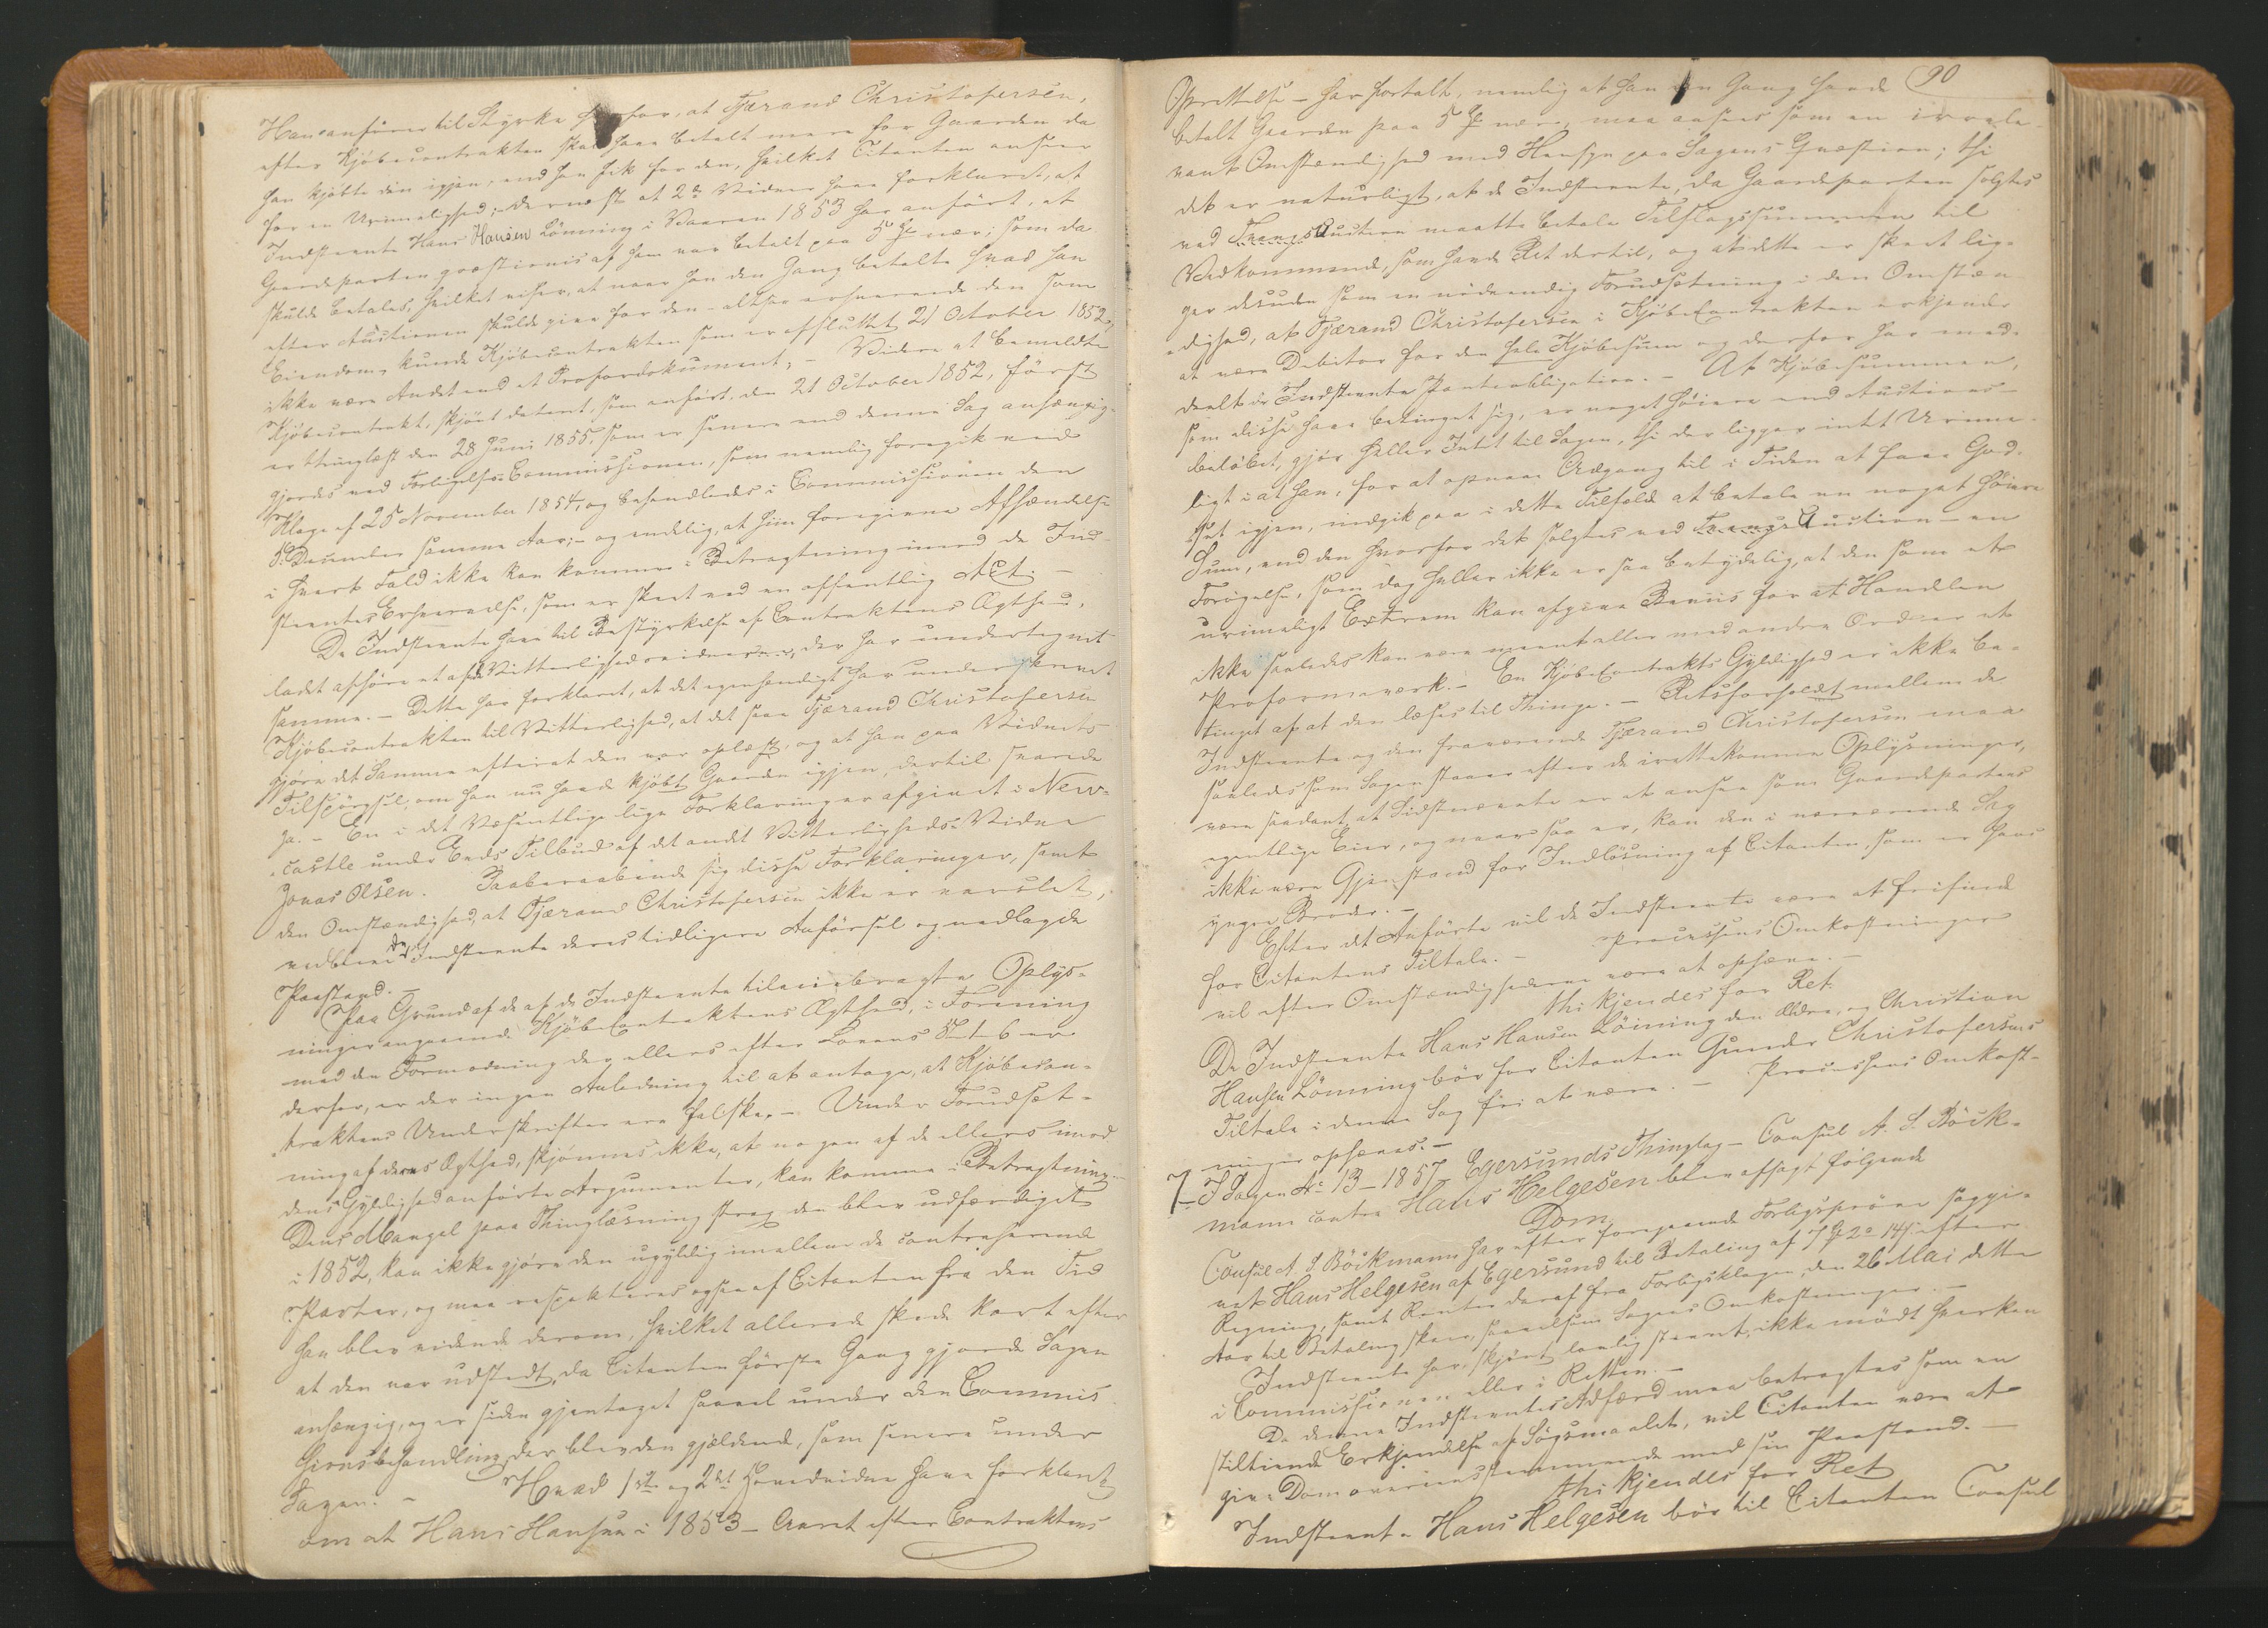 Han anfører til Styrke herfor, at Tjærand Christofersen,
efter Kjøbecontrakten skal have betalt mere for Gaarden da
han kjøbte den igjen, end han fik for den, hvilket Citanten anseer
for en Urimelighed; dernæst at 2de Vidner have forklaret, at
Indstevnte Hans Hansen Lönning i Vaaren 1853 har anført, at
Gaardparten qvæstionis af ham var betalt paa 5 Spd nær; som da
skulde betales, hvilket viser, at naar han den Gang betalte hvad han
efter Auctionen skulde give for den - altsaa erhvervede den som
Eiendom, kunde Kjøbecontrakten som er afsluttet 21 October 1852,
ikke være Andet end et Proformadokument; - Videre at bemeldte
Kjøbecontrakt, skjönt dateret, som anført, den 21 October 1852, først
er thinglæst den 28 Juni 1855, som er senere end denne Sag anhængig-
gjordes ved Forligelses-Commissionen, som nemlig foregik ved
Klage af 25 November 1854, og behandledes i Commissionen den
5 December samme Aar; - og endelig, at hiin foregivne Afhændelse
i hvert Fald ikke kan komme i Betragtning imod de Ind-
stevntes Erhvervelse, som er skeet ved en offentlig Act. -
De Indstevnte have til Bestyrkelse af Contraktens Ægthed,
ladet afhøre et af Vitterlighedsvidnerne, der har undertegnet
samme. - Dette har forklaret, at det egenhændigt har underskrevet
Kjøbecontrakten til Vitterlighed, at det saae Tjærand Christofersen
gjøre det Samme efterat den var oplæst, og at han paa Vidnets
Tilspörgsel, om han nu havde kjøbt Gaarden igjen, dertil svarede
ja. - En i det Væsentlige lige Forklaring er afgivet i New-
castle under Eeds Tilbud af det andet Vitterligheds-Vidne
Jonas Olsen. Paaberaabende sig disse Forklaringer, samt
den Omstændighed, at Tjærand Christofersen ikke er varslet,
vedblev de Indstevnte deres tidligere Anførsel og nedlagde
Paastand. -
Paa Grund af de af de Indstevnte tilveiebragte Oplys-
ninger angaaende Kjøbecontraktens Ægthed, i Forening
med den Formodning der ellers efter Lovens 5-1-6 er
derfor, er der ingen Anledning til at antage, at Kjøbecon-
traktens Underskrifter ere falske. - Under Forudsæt-
ning af deres Ægthed, skjønnes ikke, at nogen af de ellers imod
dens Gyldighed anførte Argumenter, kan komme i Betragtning. -
Dens Mangel paa Thinglæsning strax den blev udfærdiget
i 1852, kan ikke gjøre den ugyldig imellem de contraherende
Parter, og maa respekteres ogsaa af Citanten fra den Tid
han blev vidende derom, hvilket allerede skede kort efter
at den var udstedt, da Citanten første Gang gjorde Sagen
anhængig, og er siden gjentaget saavel under den Commis-
sionsbehandling, der blev den gjældende, som senere under
Sagen. - Hvad 1ste og 2det Hovedvidne have forklaret
om at Hans Hansen i 1853 - Aaret efter Contraktens
90
Oprettelse - har fortalt, nemlig at han den Gang havde
betalt Gaarden paa 5 Spd nær, maa ansees som en irrele-
vant Omstændighed med Hensyn paa Sagens Qvæstion; thi
det er naturligt, at de Indstevnte, da Gaardeparten solgtes
ved Tvangs Auction maatte betale Tilslagssummen til
Vedkommende, som havde Ret dertil, og at dette er skeet lig-
ger desuden som en nødvendig Forudsætning i den Omstæn-
dighed, at Tjærand Christofersen i Kjøbecontrakten erkjender
at være Debitor for den hele Kjøbesum og derfor har med-
deelt de Indstevnte Panteobligation. - At Kjøbesummen,
som disse have betinget sig, er noget høiere end Auctions-
beløbet, gjør heller Intet til Sagen, thi der ligger intet Urime-
ligt i at han, for at opnaae Adgang til i Tiden at faae God-
set igjen, indgik paa i dette Tilfælde at betale en noget høiere
Sum, end den hvorfor det solgtes ved Tvangs Auction - en
Forøgelse, som dog heller ikke er saa betydelig, at den som et
urimeligt Extrem kan afgive Beviis for at Handlen
ikke saaledes kan være meent eller med andre Ord er et
Proformaværk. - En Kjøbecontrakts Gyldighed er ikke be-
tinget af at den læses til Thinge. - Retsforholdet mellem de
Indstevnte og den fraværende Tjærand Christofersen maa
saaledes som Sagen staaer efter de irettekomne Oplysninger,
være saadant, at Sidstnævnte er at ansee som Gaardepartens
egentlige Eier, og naar saa er, kan den i nærværende Sag
ikke være Gjenstand for Indløsning af Citanten, som er hans
yngre Broder. -
Efter det Anførte vil de Indstevnte være at frifinde
for Citantens Tiltale. - Processens Omkostninger
vil efter Omstændighederne være at ophæve. -
Thi kjendes for Ret:
De Indstevnte Hans Hansen Löining den Ældre, og Christian
Hansen Lönning bør for Citanten Gunder Christofersens
Tiltale i denne Sag fri at være. - Processens Omkost-
ninger ophæves. -
7- I Sagen No 13 - 1857 Egersunds Thinglag - Consul A. S. Böck-
mann contra Hans Helgesen blev afsagt følgende
Dom,
Consul A. S. Böckmann har efter foregaaende Forligsprøve sagsgi-
vet Hans Helgesen af Egersund til Betaling af 7 Spd 2 14 s efter
Regning, samt Renter deraf fra Forligsklagen, den 26 Mai dette
Aar til Betaling skeer, saavelsom Sagens Omkostninger. -
Indstevnte har, skjönt lovlig stevnt, ikke mødt hverken
i Commissionen eller i Retten. -
Da denne Indstevntes Adfærd maa betragtes som en
stiltiende Erkjendelse af Søgsmaalet, vil Citanten være at
give Dom overeensstemmende med sin Paastand. -
Thi kjendes for Ret
Indstevnte Hans Helgesen bør til Citanten Consul